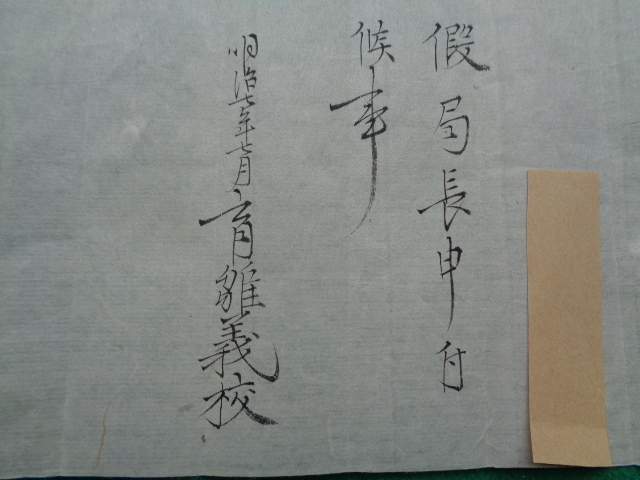 假局長申付
候事
明治七年七月育雛義校